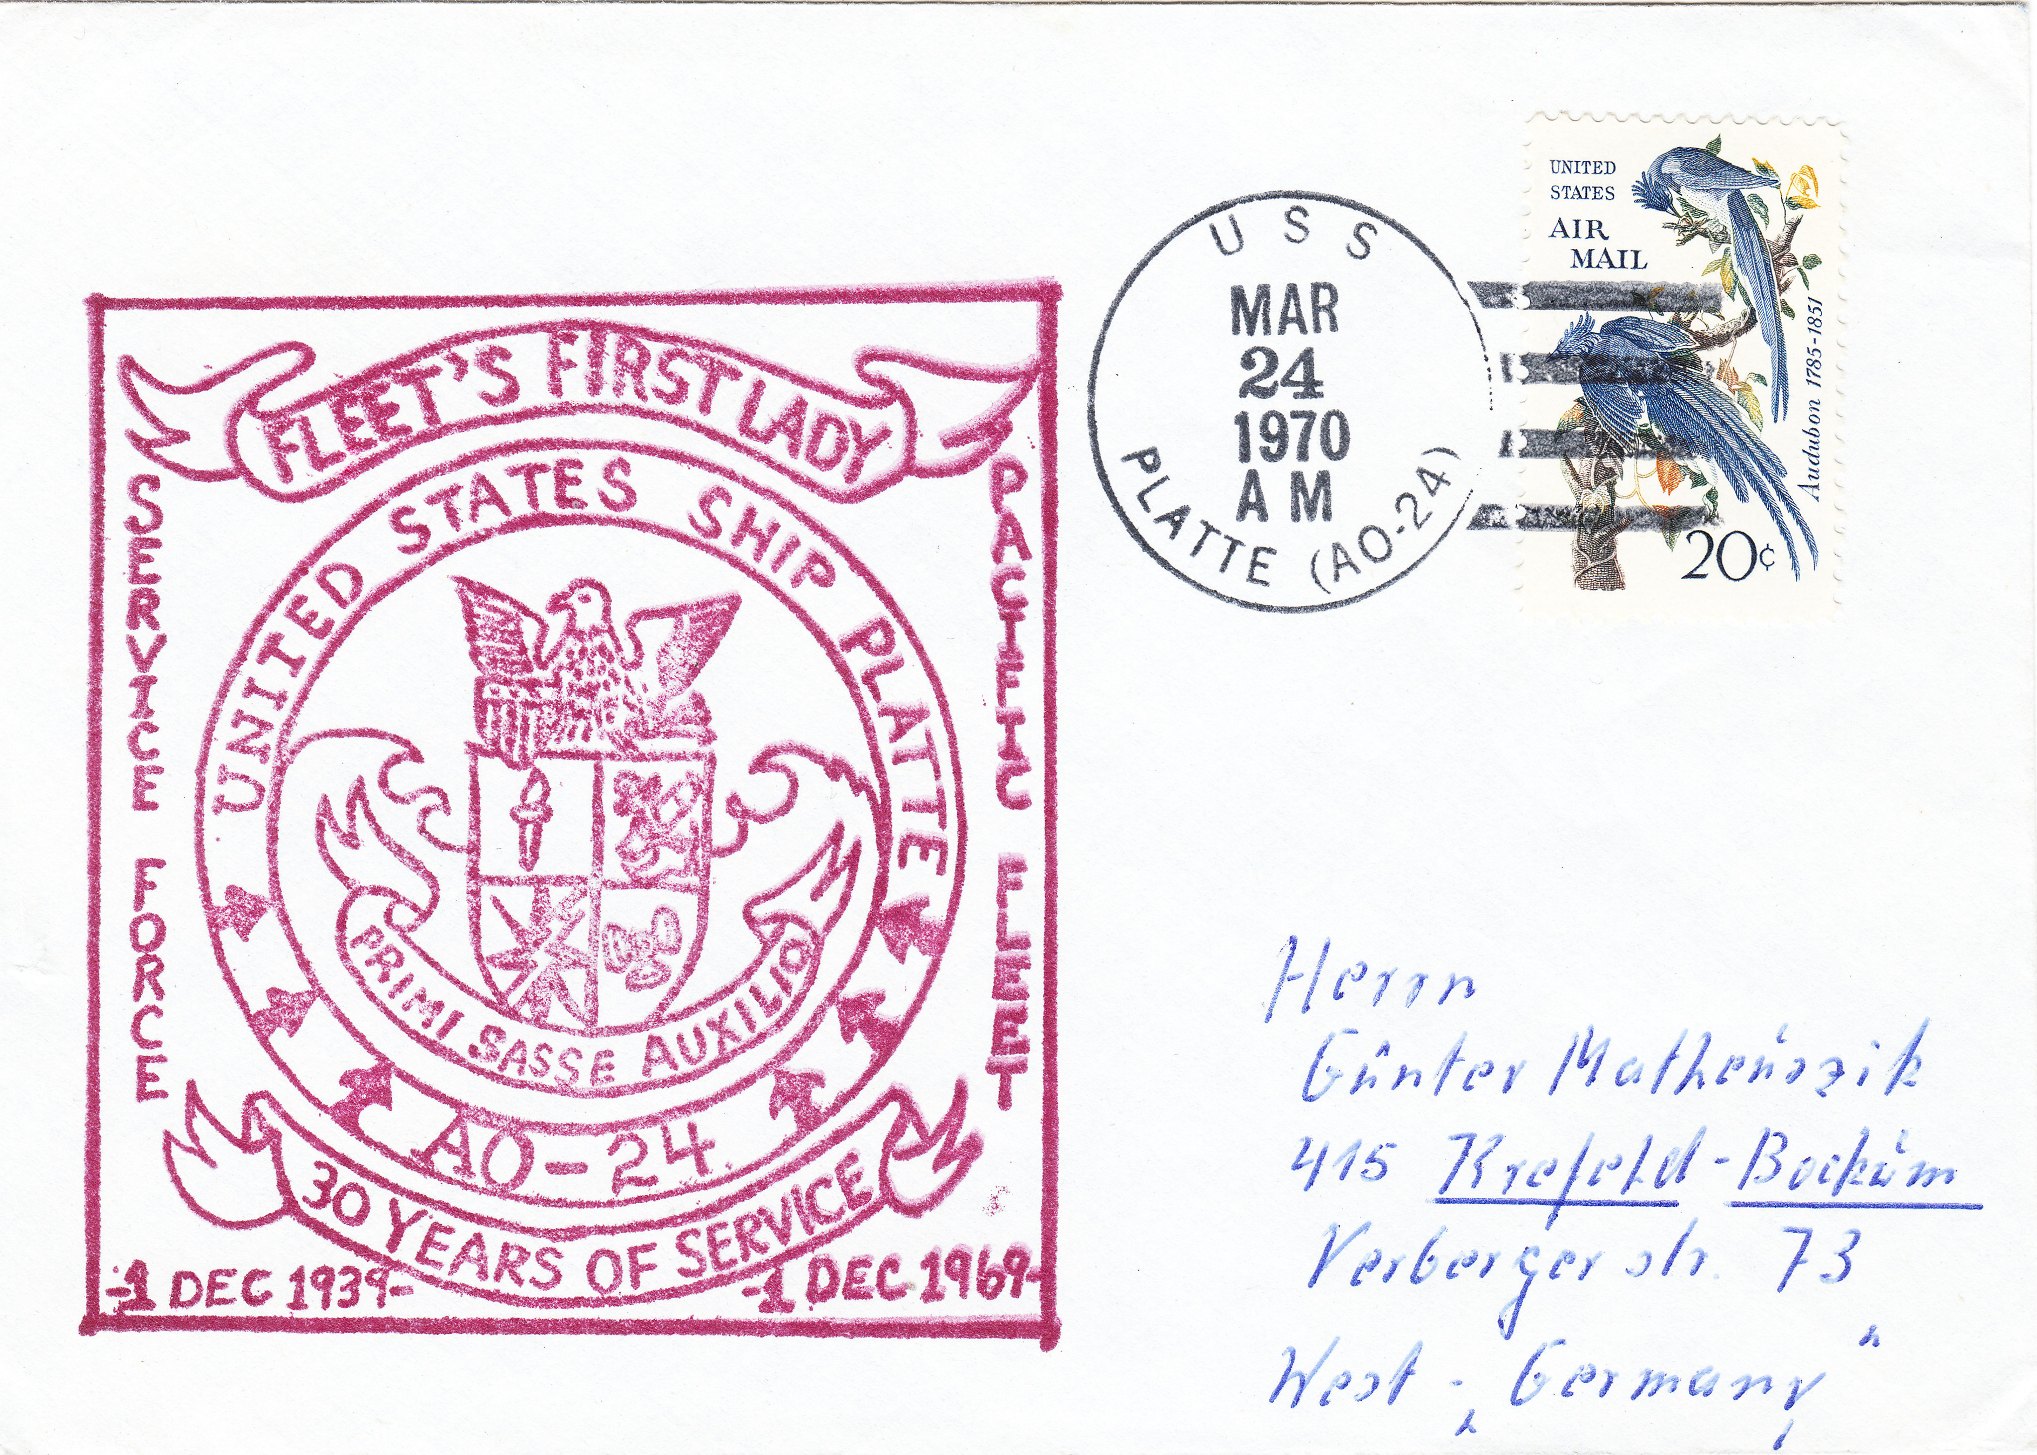 FLEET'S FIRST LADY
UNITED STATES SHIP PLATTE
SERVICE FORCE
PACIFIC FLEET
PRIMI SASSE AUXILIO
AO-24.
30 YEARS OF SERVICE
-1 DEC 1939-
-1 DEC 1969-
USS
MAR
24
1970
AM
PLATTE (AO-24)
UNITED
STATES
AIR
MAIL
Audubon 1785-1851
20c
Herrn
Günter Matheüszik
415 Krefeld-Bocküm
Verberger str. 73
West-„Germany"